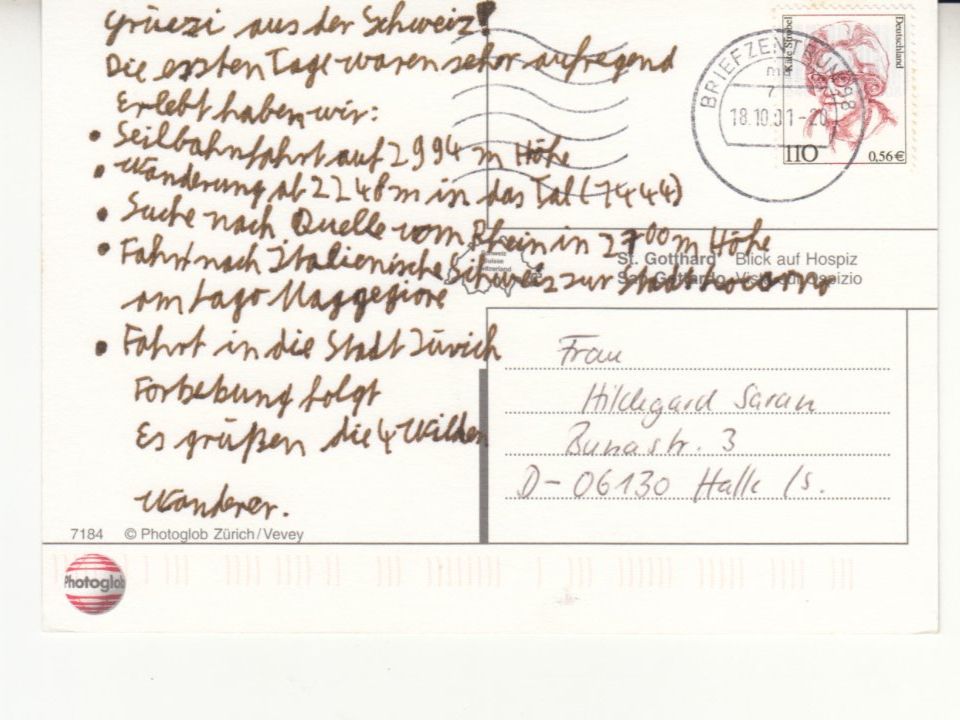 Grüezi aus der Schweiz!
Die ersten Tage waren sehr aufregend
Erlebt haben wir:
• Seilbahnfahrt auf 2994 m Höhe
• Wanderung ab 2248m in das Tal (1444)
• Suche nach Quelle vom Rhein in 2700 m Höhe
• Fahrt nach Italienische Schweiz zur Stadt Locarno
am Lago Maggegiore
• Fahrt in die Stadt Zürich
Fortsetzung folgt
Es grüßen die 4 Wilden
Wanderer.
7184 © Photoglob Zürich/Vevey
Photoglob
Käte Strobel
Deutschland
110
0,56€
BRIEFZENTRUM
18.10.01-20
Schweiz
Suisse
Switzerland
St. Gotthard Blick auf Hospiz
San Gottardo Vista sul ospizio
Frau
Hildegard Saran
Bunastr. 3
D-06130 Halle /S.